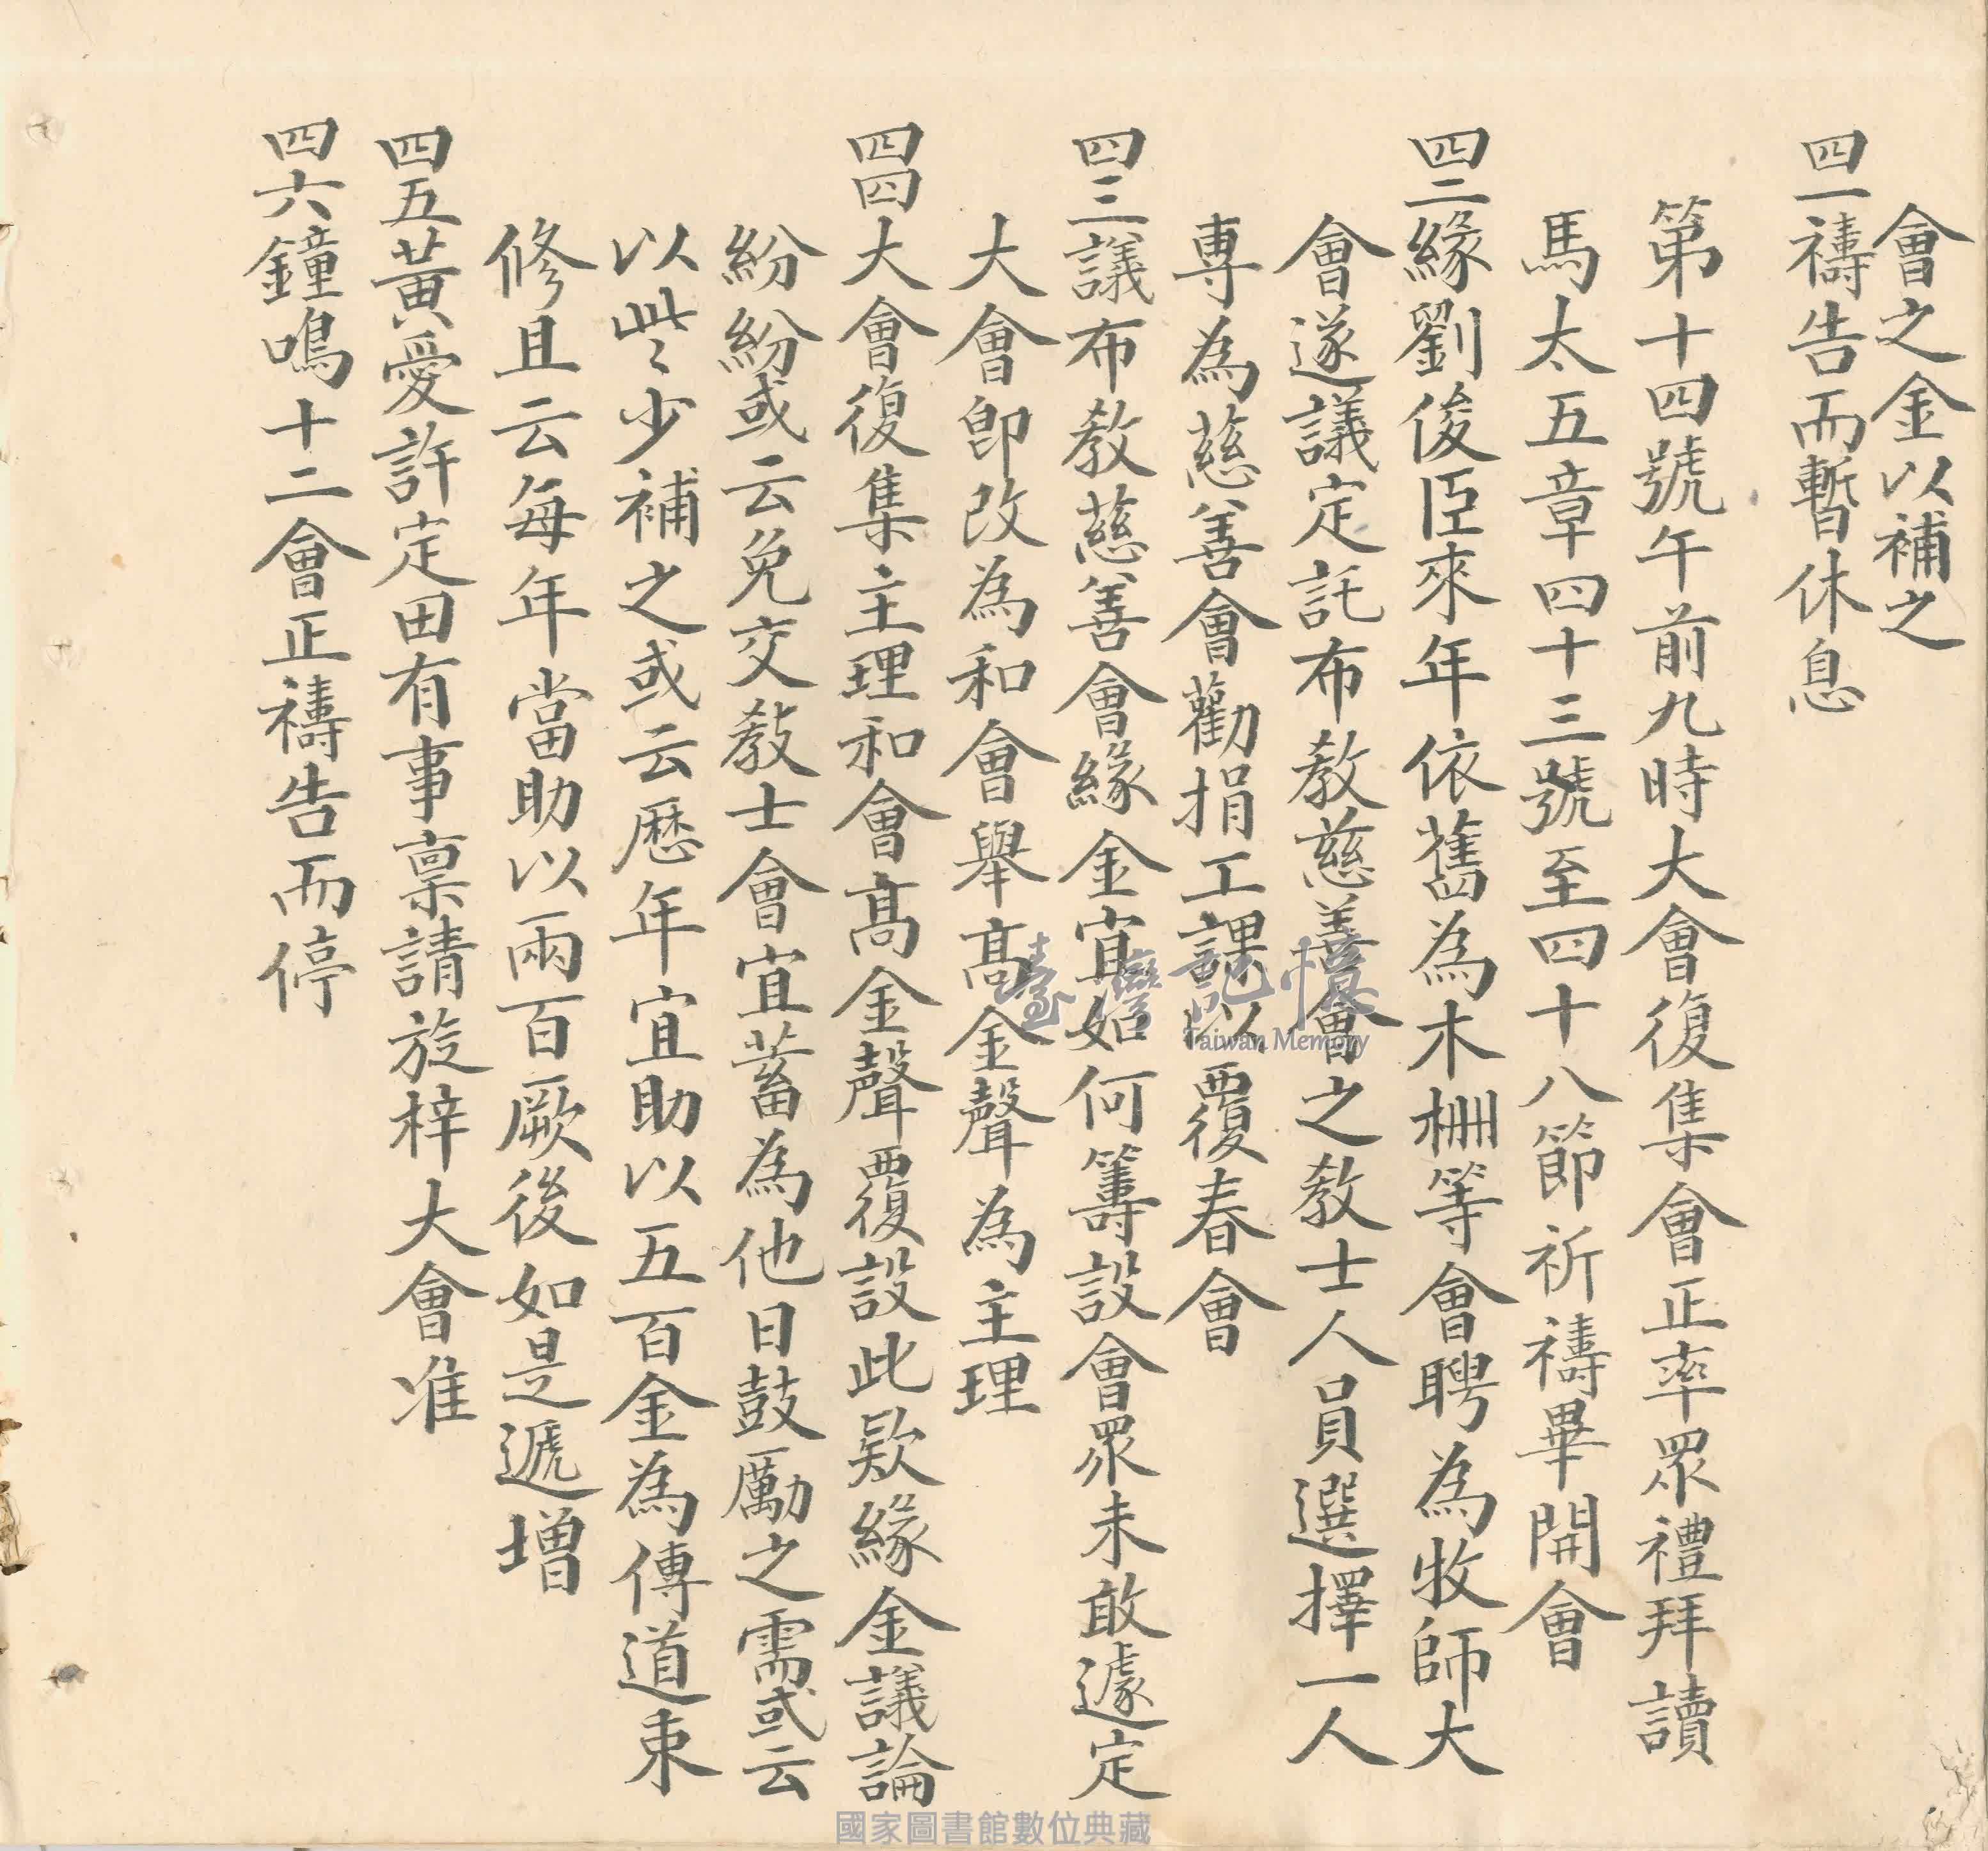 會之金以補之
四一禱告而暫休息
第十四號午前九時大會復集會正率眾禮拜讀
馬太五章四十三號至四十八節祈禱畢開會
四二緣劉俊臣來年依舊為木柵等會聘為牧師大
會遂議定託布教慈善會之教士人員選擇一人
專為慈善會勸捐工課以覆春會
四三議布教慈善會緣金宜如何籌設會眾未敢遽定
大會即改為和會舉高金聲為主理
四四大會復集主理和會高金聲覆設此欵緣金議論
紛紛或云免交教士會宜蓄為他日鼓勵之需或云
以些々少補之或云歷年宜助以五百金為傳道束
修且云每年當助以兩百厥後如是遞增
四五黃愛許定田有事稟請旋梓大會准
四六鐘鳴十二會正禱告而停
臺灣記憶
Taiwan Memory
國家圖書館數位典藏